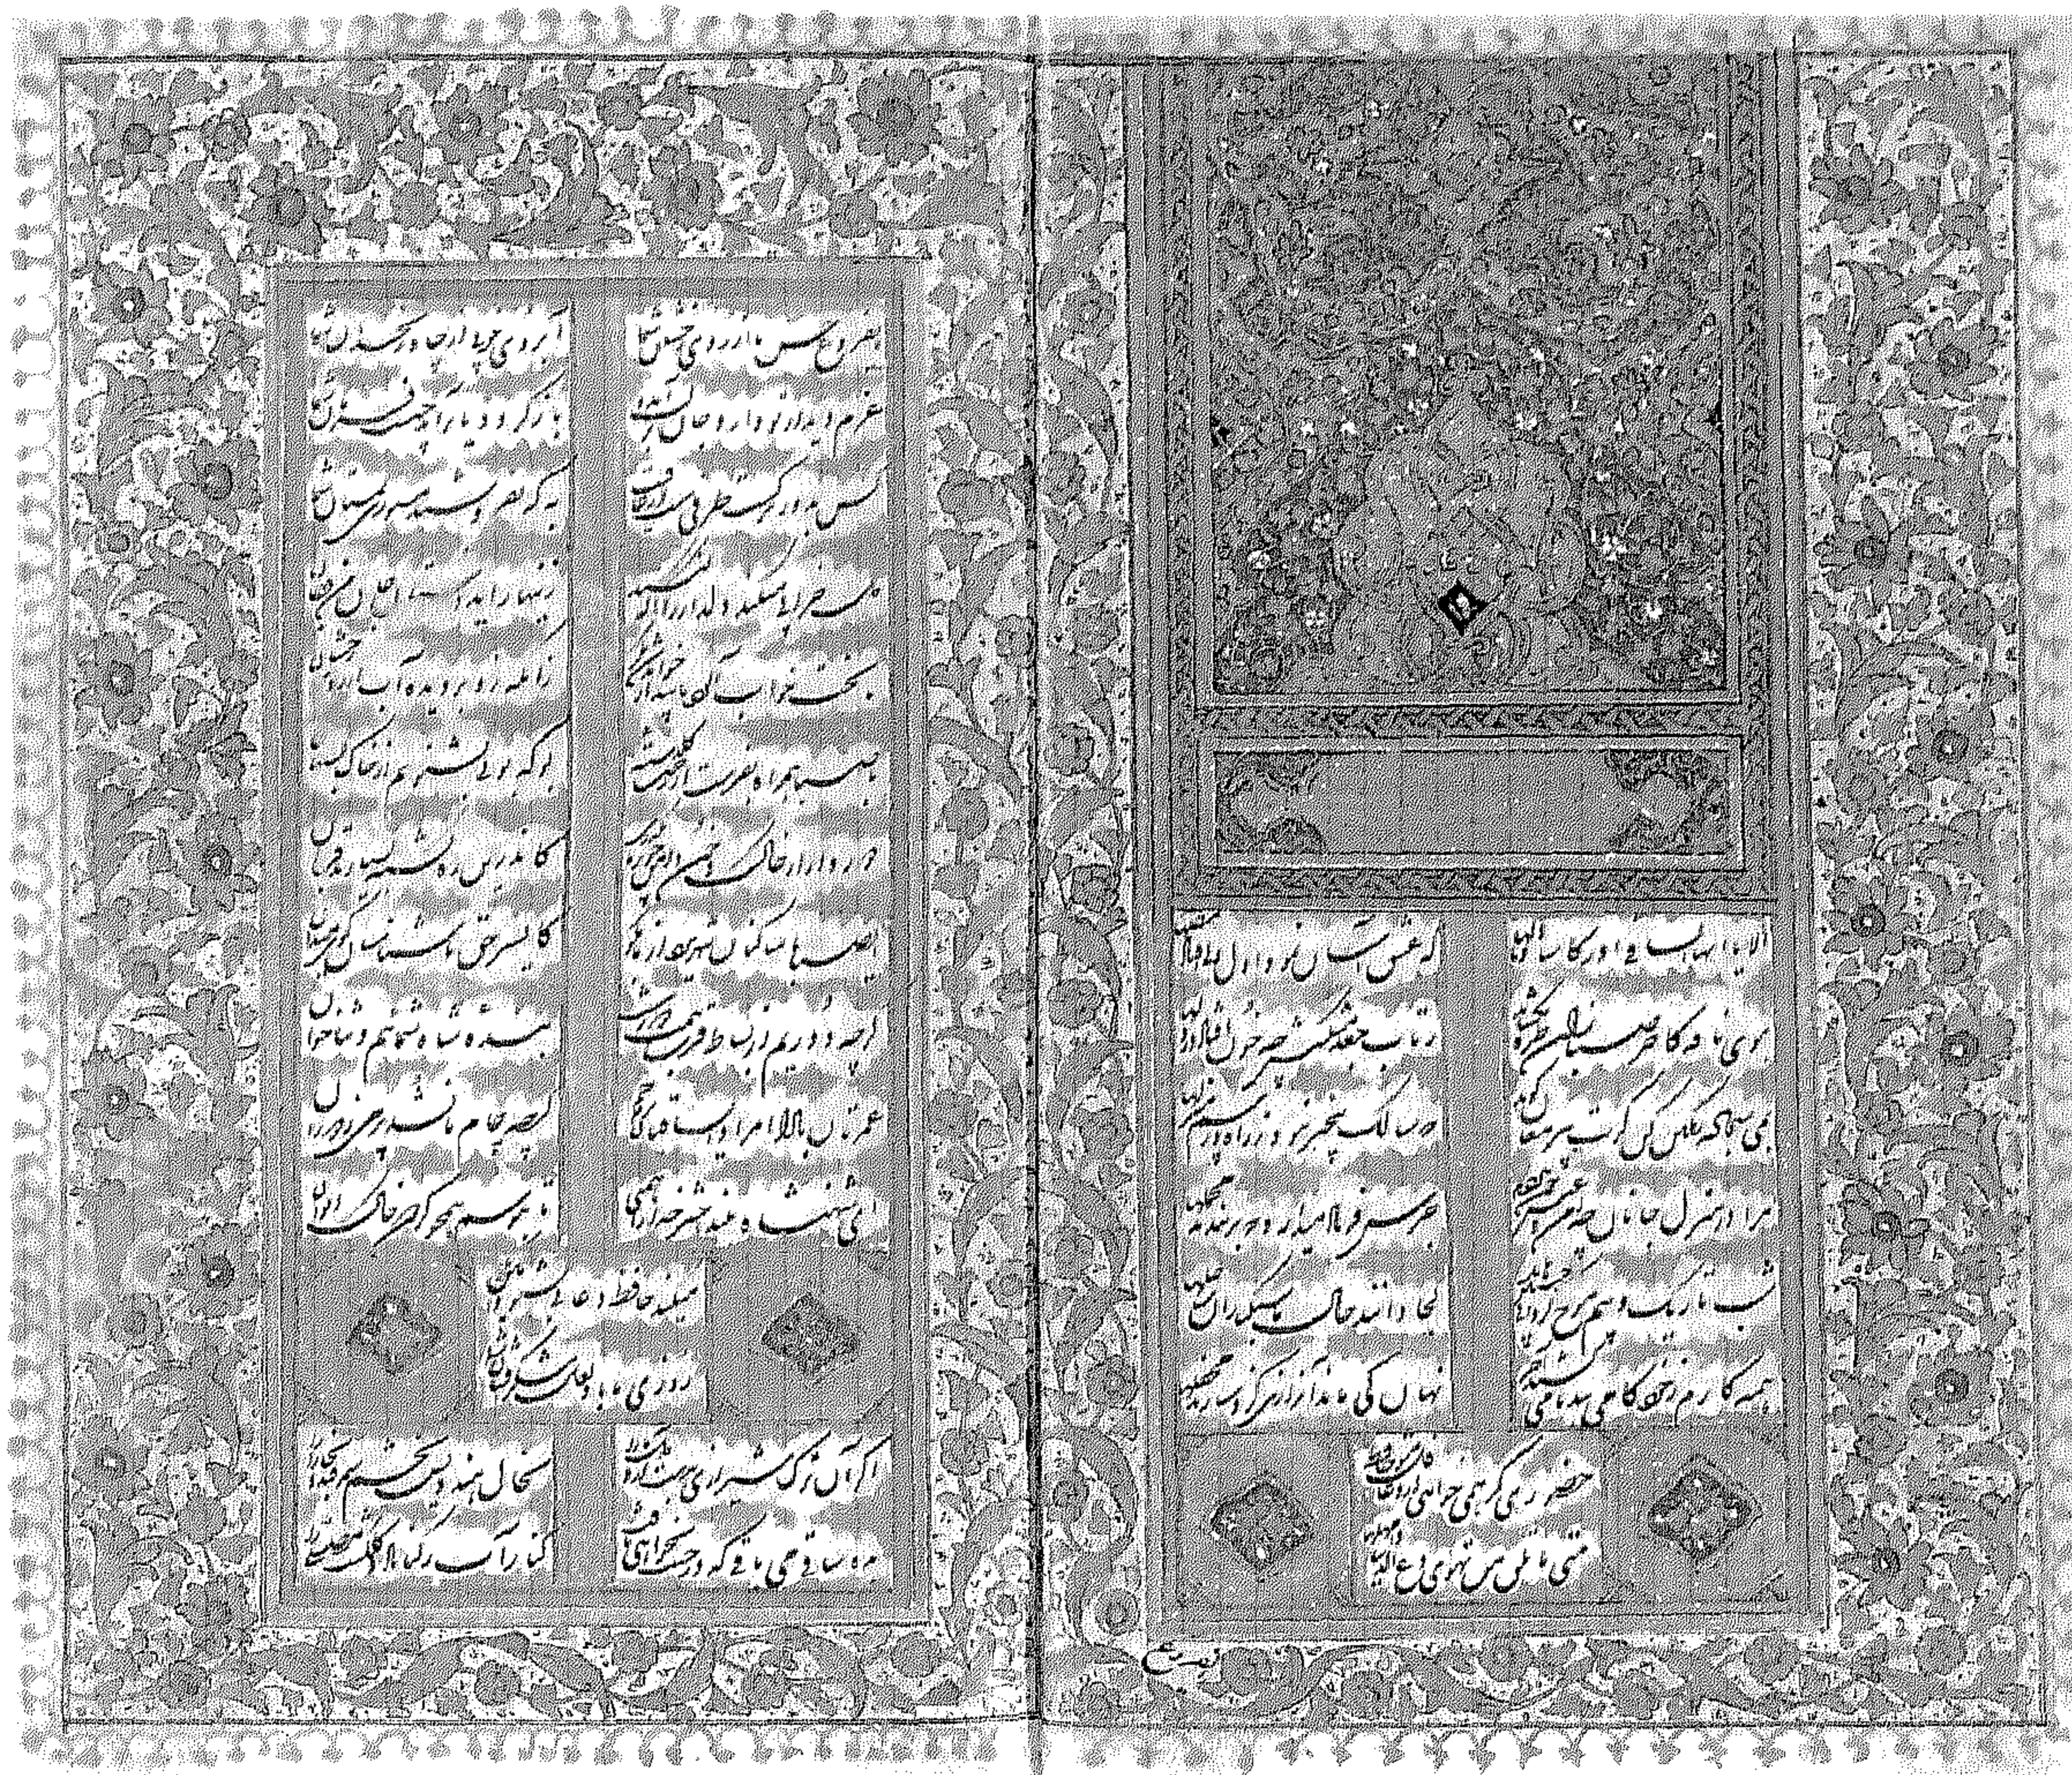 الا یا ایها الساقی ادر کاسا و ناولها که عشق آسان نمود اول ولی افتاد مشکلها
بوی نافه کاخر صبا زان طره بگشاید ز تاب جعد مشکینش چه خون افتاد در دلها
بمی سجاده رنگین کن گرت پیر مغان گوید که سالک بیخبر نبود ز راه و رسم منزلها
مرا در منزل جانان چه امن عیش چون هردم جرس فریاد میدارد که بربندید محملها
شب تاریک و بیم موج و گردابی چنین هایل کجا دانند حال ما سبکباران ساحلها
همه کارم ز خود کامی ببدنامی کشید آخر نهان کی ماند آن رازی کزو سازند محفلها
حضوری گر همی خواهی ازو غایب مشو حافظ
متی ما تلق من تهوی دع الدنیا و اهملها
ایفروغ حسن ماه از روی رخشان شما آبروی خوبی از چاه زنخدان شما
عزم دیدار تو دارد جان بر لب آمده باز گردد یا برآید چیست فرمان شما
کس بدور نرگست طرفی نبست از عافیت به که نفروشند مستوری بمستان شما
دل خرابی میکند دلدار را آگه کنید زینهار ای دوستان جان من و جان شما
بخت خواب آلود ما بیدار خواهد شد مگر زانکه زد بر دیده آب روی رخشان شما
با صبا همراه بفرست از رخت گلدسته بو که بوئی بشنویم از خاک بستان شما
دور دار از خاک و خون دامن چو بر ما بگذری کاندرین ره کشته بسیارند قربان شما
ایصبا با ساکنان شهر یزد از ما بگو کای سر حق ناشناسان گوی میدان شما
گرچه دوریم از بساط قرب همت دور نیست بنده شاه شمائیم و ثناخوان شما
عمرتان بادا مراد ای ساقیان بزم جم گرچه جام ما نشد پر می بدوران شما
ای شهنشاه بلند اختر خدا را همتی تا ببوسم همچو گردون خاک ایوان شما
میکند حافظ دعائی بشنو آمین بگو
روزی ما باد لعل شکرافشان شما
اگر آن ترک شیرازی بدست آرد دل ما را بخال هندویش بخشم سمرقند و بخارا را
بده ساقی می باقی که در جنت نخواهی یافت کنار آب رکناباد و گلگشت مصلی را